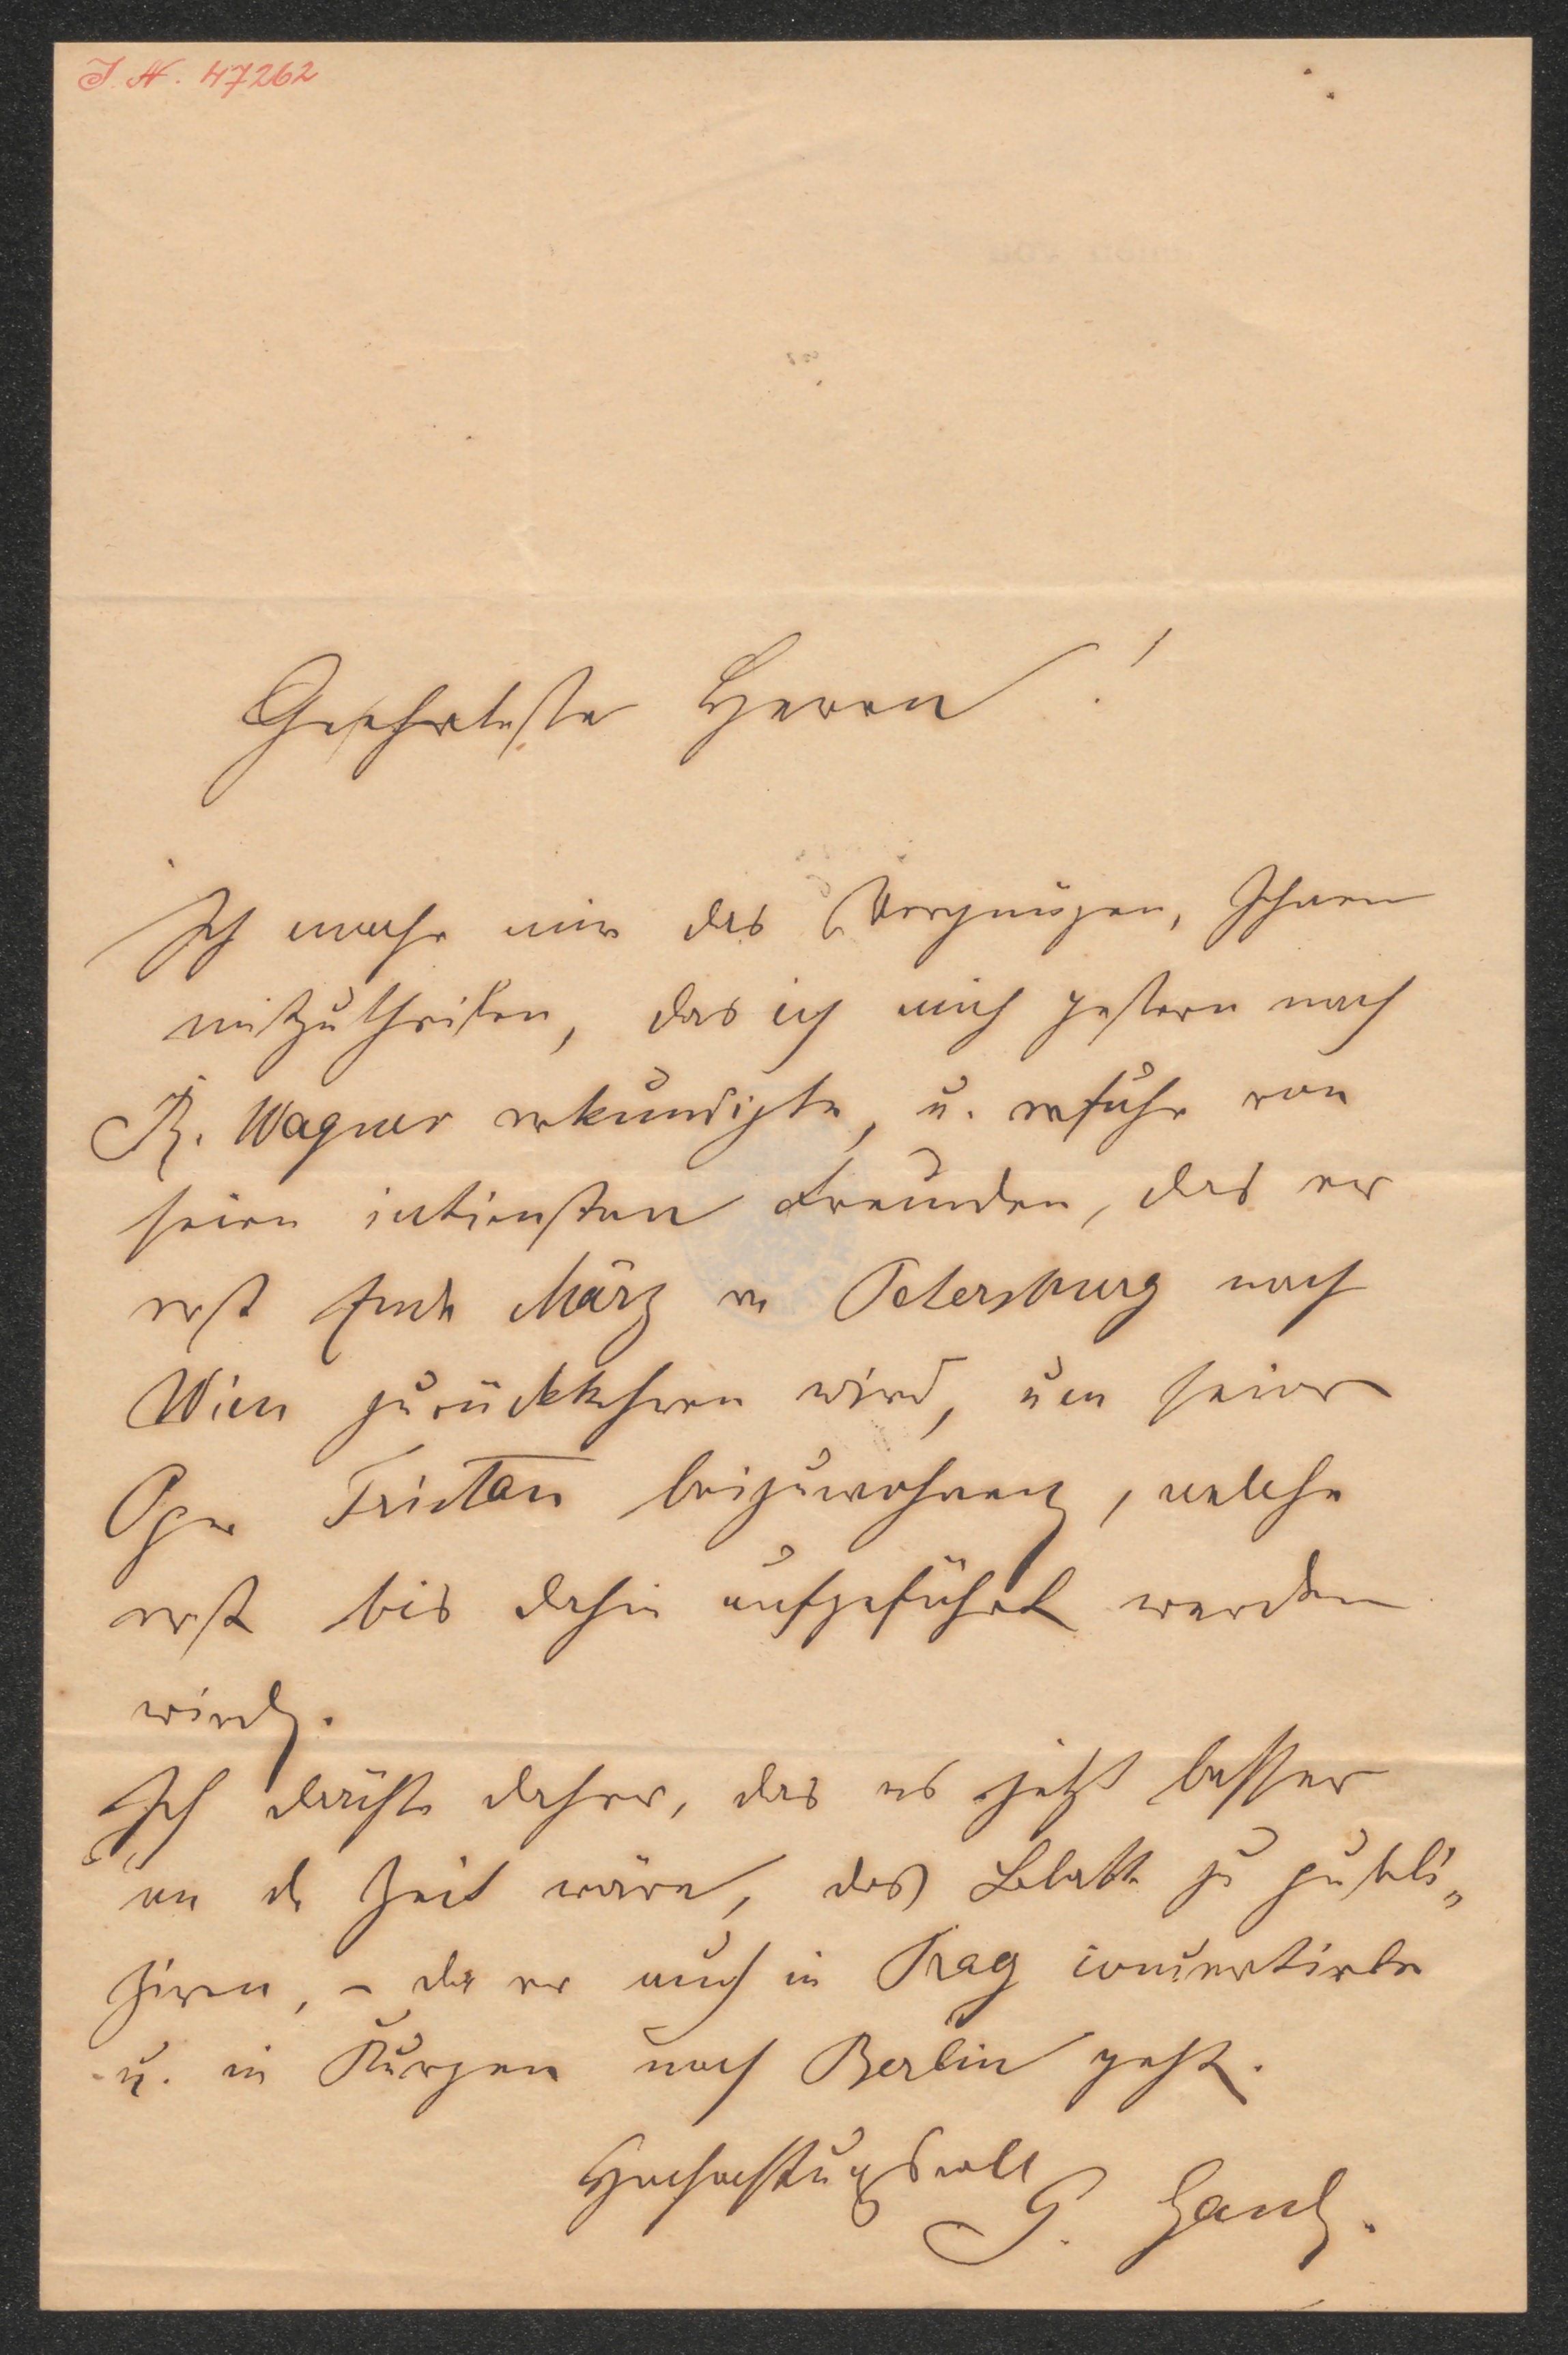 I. N. 47262
Geehrteste Herrn!
Ich mache mir das Vergnügen, Ihnen
mitzutheilen, das ich mich gestern nach
R. Wagner erkundigte, u. erfuhr von
seien intiensten Freunden, das er
erst Ende März v. Petersburg nach
Wien zurückkehren wird, um seiner
Oper Tristan beizuwohnen, welche
erst bis dahin aufgeführt werden
wird.
Ich dächte daher, das es jetzt besser
an de Zeit wäre, das Blatt zu publi„
ziren, – da er auch in Prag concertirte
u. in Kurzen nach Berlin geht.
Hochachtungsvoll
G.